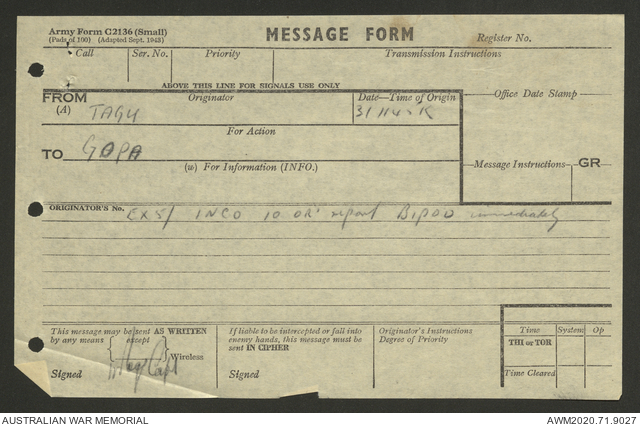 Army Form C2136 (Small)
(Pads of 100) (Adapted Sept. 1943)
MESSAGE FORM
Register No.
Call
Ser. No.
Priority
Transmission Instructions
ABOVE THIS LINE FOR SIGNALS USE ONLY
FROM
(A)
Originator
TAGU
Date—Time of Origin
Office Date Stamp
For Action
TO
GOPA
(w) For Information (INFO.)
Message Instructions
GR
ORIGINATOR'S No.
INCO 10 OR's report BIPOD immediately
This message may be sent AS WRITTEN
by any means except
Wireless
Signed
Capt
If liable to be intercepted or fall into
enemy hands, this message must be
sent IN CIPHER
Signed
Originator's Instructions
Degree of Priority
Time
System
Op
THI or TOR
Time Cleared
AUSTRALIAN WAR MEMORIAL
AWM2020.71.9027